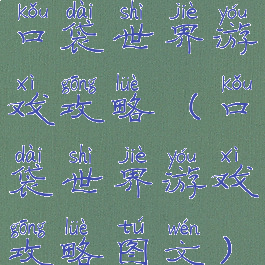 kǒu dài shì jiè yóu
口袋世界游
xì gōng lüè kǒu
戏攻略（口
dài shì jiè yóu xì
袋世界游戏
gōng lüè tú wén
攻略图文）